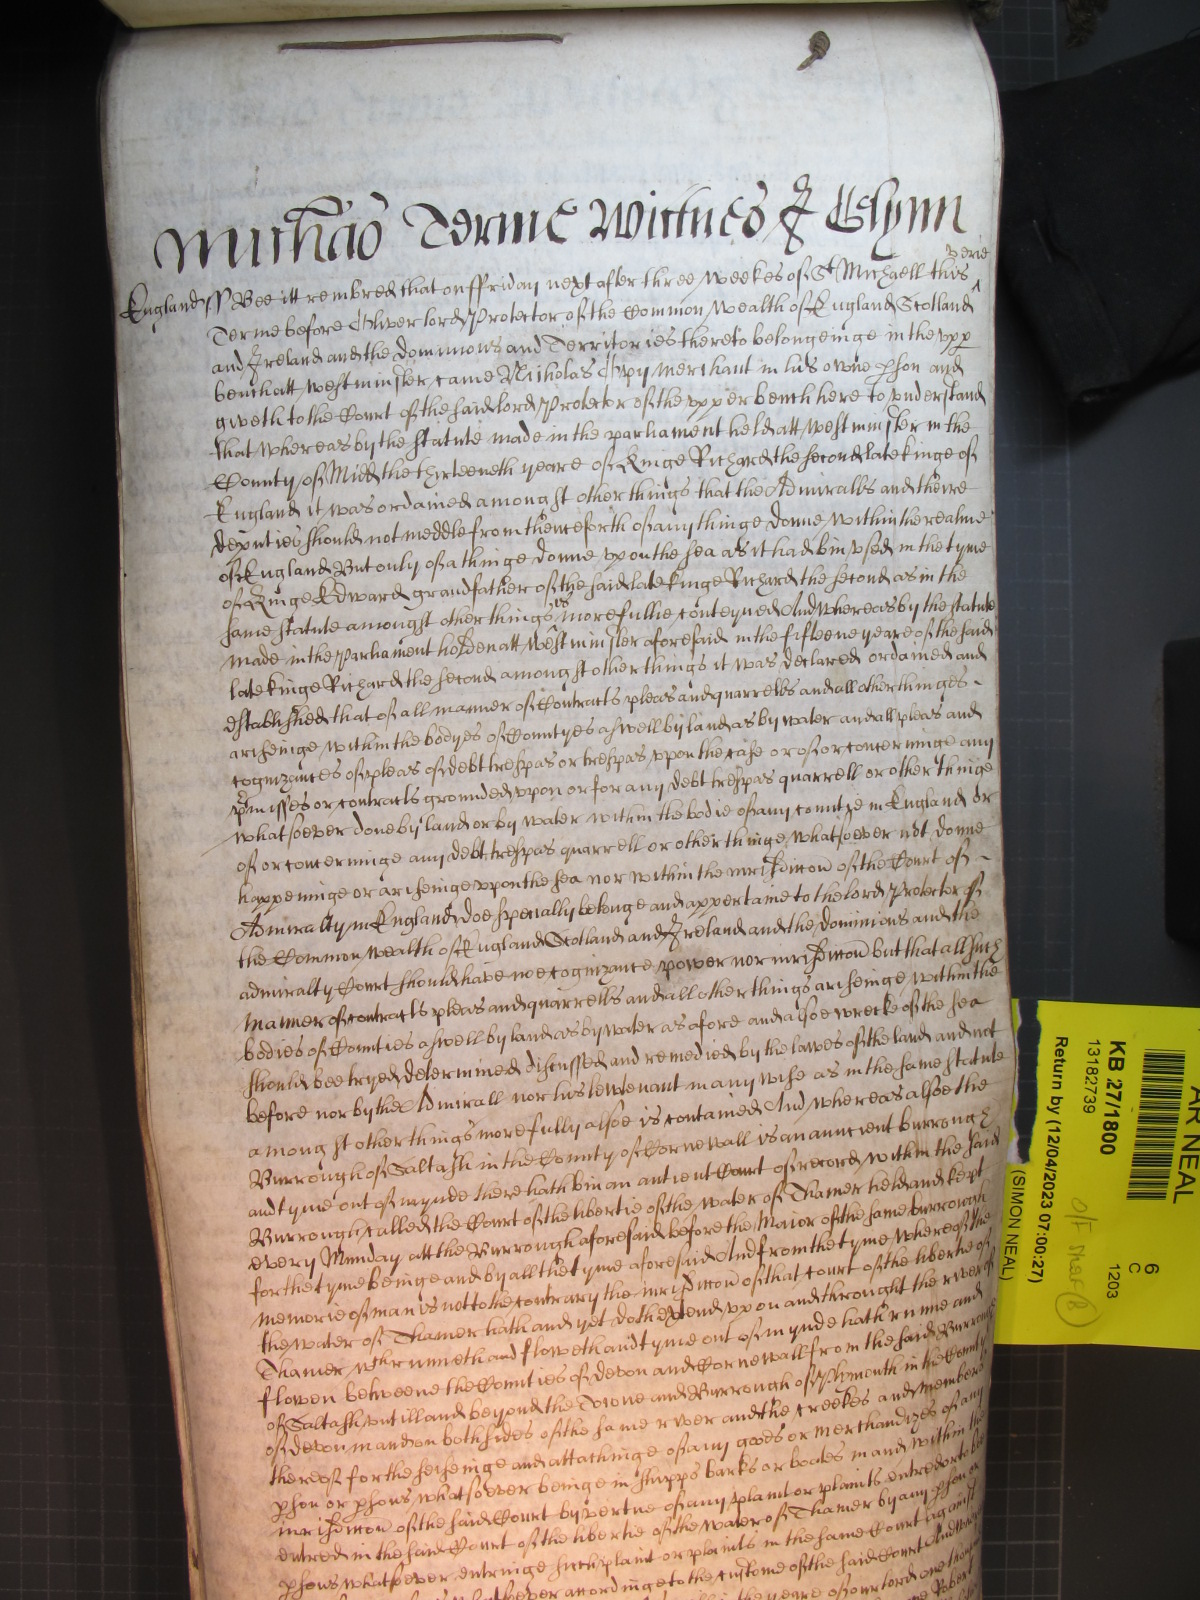 Michas Terme Wittnes J Glynn
England ss Bee itt remembred that on ffriday next after three weekes of St Michaell this verie
Terme before Oliver lord Protector of the Common Wealth of England Scotland
and Ireland and the dominions and Territories thereto belongeinge in the upp
bench att Westminster came Nicholas Opy Merchant in his owne pson and
giveth to the Court of the said lord Protector of the upper bench here to understand
that whereas by the statute made in the parliament held att Westminster in the
County of Midd the thirteenth yeare of Kinge Richard the second late kinge of
England it was ordained amongst other things that the Admiralls and theire
deputies should not meddle from thenceforth of any thinge donne within the realme
of England But only of a thinge donne upon the sea as it had bin used in the tyme
of Kinge Edward grandfather of the said late kinge Richard the second as in the
same statute amongst other things is more fullie conteyned And whereas by the statute
made in the Parliament holden att Westminster aforesaid in the fifteene yeare of the said
late kinge Richard the second amongst other things it was declared ordained and
established that of all manner of Contracts pleas and quarrells and all other thinges
ariseinge within the bodyes of Countyes aswell by land as by water and all pleas and
cognizances of pleas of debt trespas or trespas upon the case or of or concerninge any
pmisses or contracts grounded upon or for any debt trespas quarrell or other thinge
whatsoever done by land or by water within the bodie of any countie in England or
of or concerninge any debt trespas quarrell or other thinge whatsoever not donne
happeninge or ariseinge upon the sea nor within the iurisdiccon of the Court of
Admiralty in England doe specially belonge and appertaine to the lord Protector of
the Common Wealth of England Scotland and Ireland and the dominions and the
admiralty Court should have noe cognizance power nor iurisdiccon but that all such
manner of contracts pleas and quarrells and all other things ariseinge within the
bodies of Counties aswell by land as by water as afore and alsoe wrecke of the sea
should bee tryed determined discussed and remedied by the lawes of the land and not
before nor by the Admirall nor his lewtenant in any wise as in the same statute
amongst other things more fully alsoe is contained And whereas alsoe the
Burrough of Saltash in the County of Cornewall is an auncient burrough
and tyme out of mynde there hath bin an antient Court of record within the said
Burrough called the Court of the libertie of the water of Thamer held and kept
every Munday att the Burrough aforesaid before the Maior of the same burrough
for the tyme beinge and by all the tyme aforesaid And from the tyme whereof the
memorie of man is not to the contrary the iurisdiccon of that court of the libertie of
the water of Thamer hath and yet doth extend upon and throught the river of
Thamer wch runneth and floweth and tyme out of mynde hath runne and
flowen betweene the Counties of devon and Cornewall from the said Burrough
of Saltash untill and beyond the Towne and Burrough of Plymouth in the County
of devon and on both sides of the same river and the creekes and members
thereof for the seiseinge and attachinge of any goods or merchandizes of any
pson or psons whatsoever beinge in shipps barks or boates in and within the
iurisdiccon of the said Court by vertue of any plaint or plaints entred or to be
entred in the said Court of the libertie of the water of Thamer by any pson or
psons whatsoever entringe such plaint or plaints in the same Court against
whatsoever accordinge to the custome of the said Court And
in the yeare of our lord one
Robert
AR NEAL
KB 27/1800
13182739
Return by (12/04/2023 07:00:27)
(SIMON NEAL)
6
C
1203